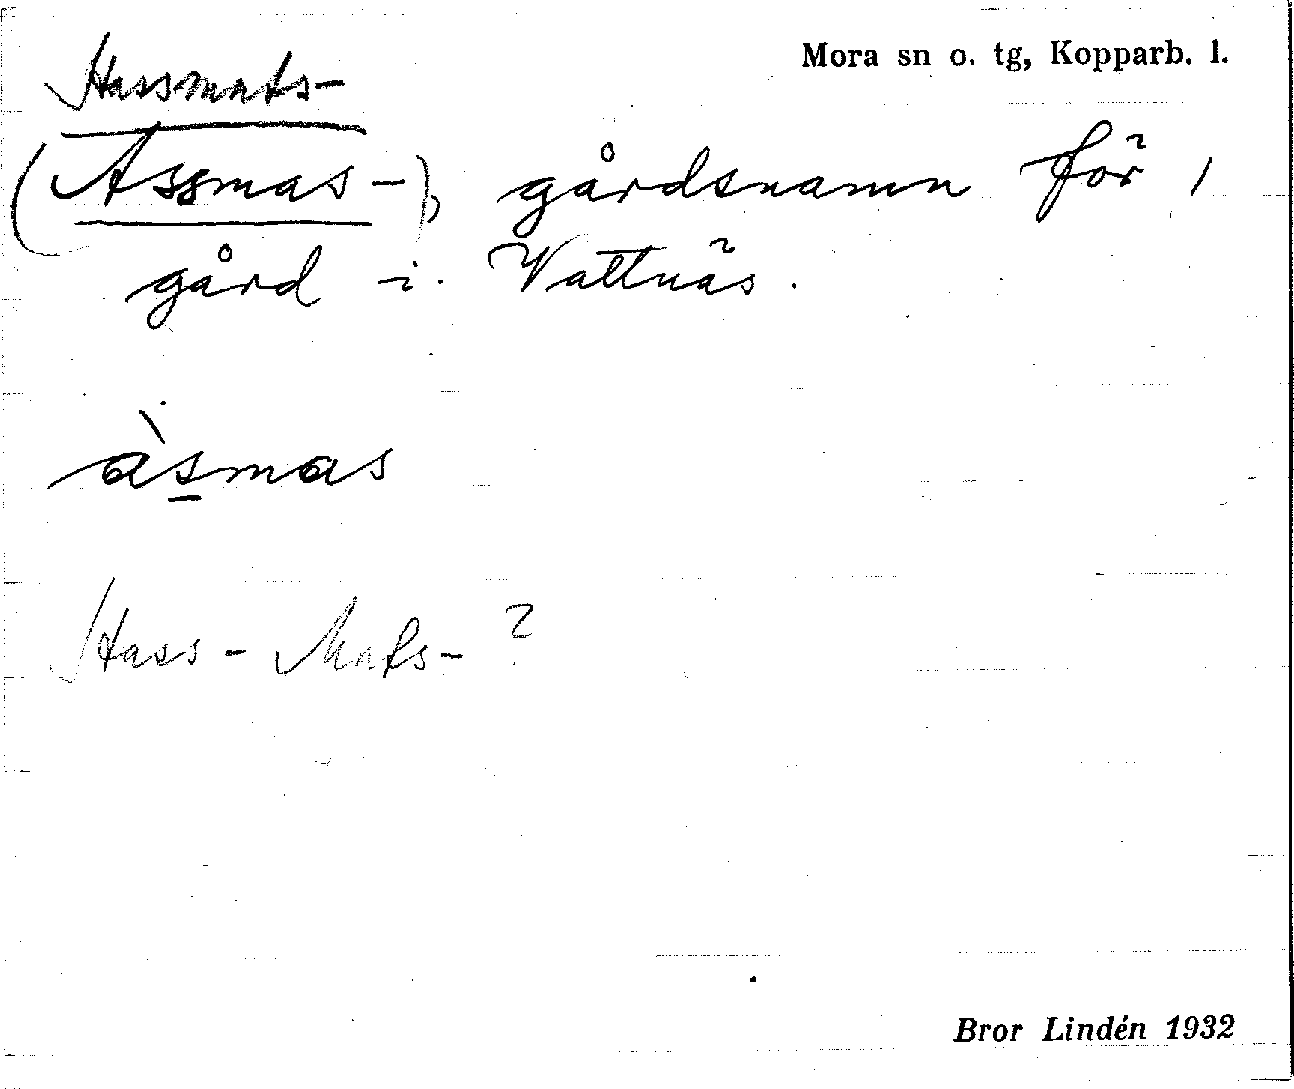 Mora sn o. tg, Kopparb. l.
Hassmats-
(Assmas-), gårdsnamn för 1
gård i Vattnäs.
àsmas
Hass-Mats-?
Bror Lindén 1932